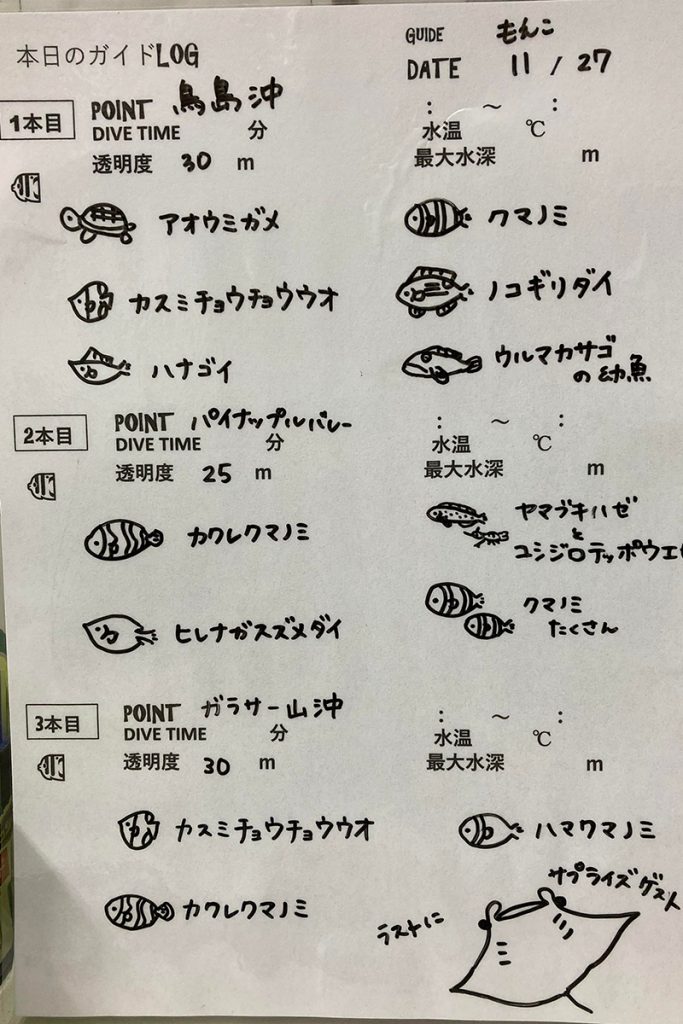 本日のガイドLOG
GUIDE もんこ
DATE 11 / 27
1本目
POINT 鳥島沖
DIVE TIME 分
: ～ :
水温 ℃
透明度 30 m
最大水深 m
アオウミガメ
クマノミ
カスミチョウチョウウオ
ノコギリダイ
ハナゴイ
ウルマカサゴ
の幼魚
2本目
POINT パイナップルバレー
DIVE TIME 分
: ～ :
水温 ℃
透明度 25 m
最大水深 m
カクレクマノミ
ヤマブキハゼ
と
コシジロテッポウエ
ヒレナガスズメダイ
クマノミ
たくさん
3本目
POINT ガラサー山沖
DIVE TIME 分
: ～ :
水温 ℃
透明度 30 m
最大水深 m
カスミチョウチョウウオ
ハマクマノミ
カクレクマノミ
ラストに
サプライズゲスト